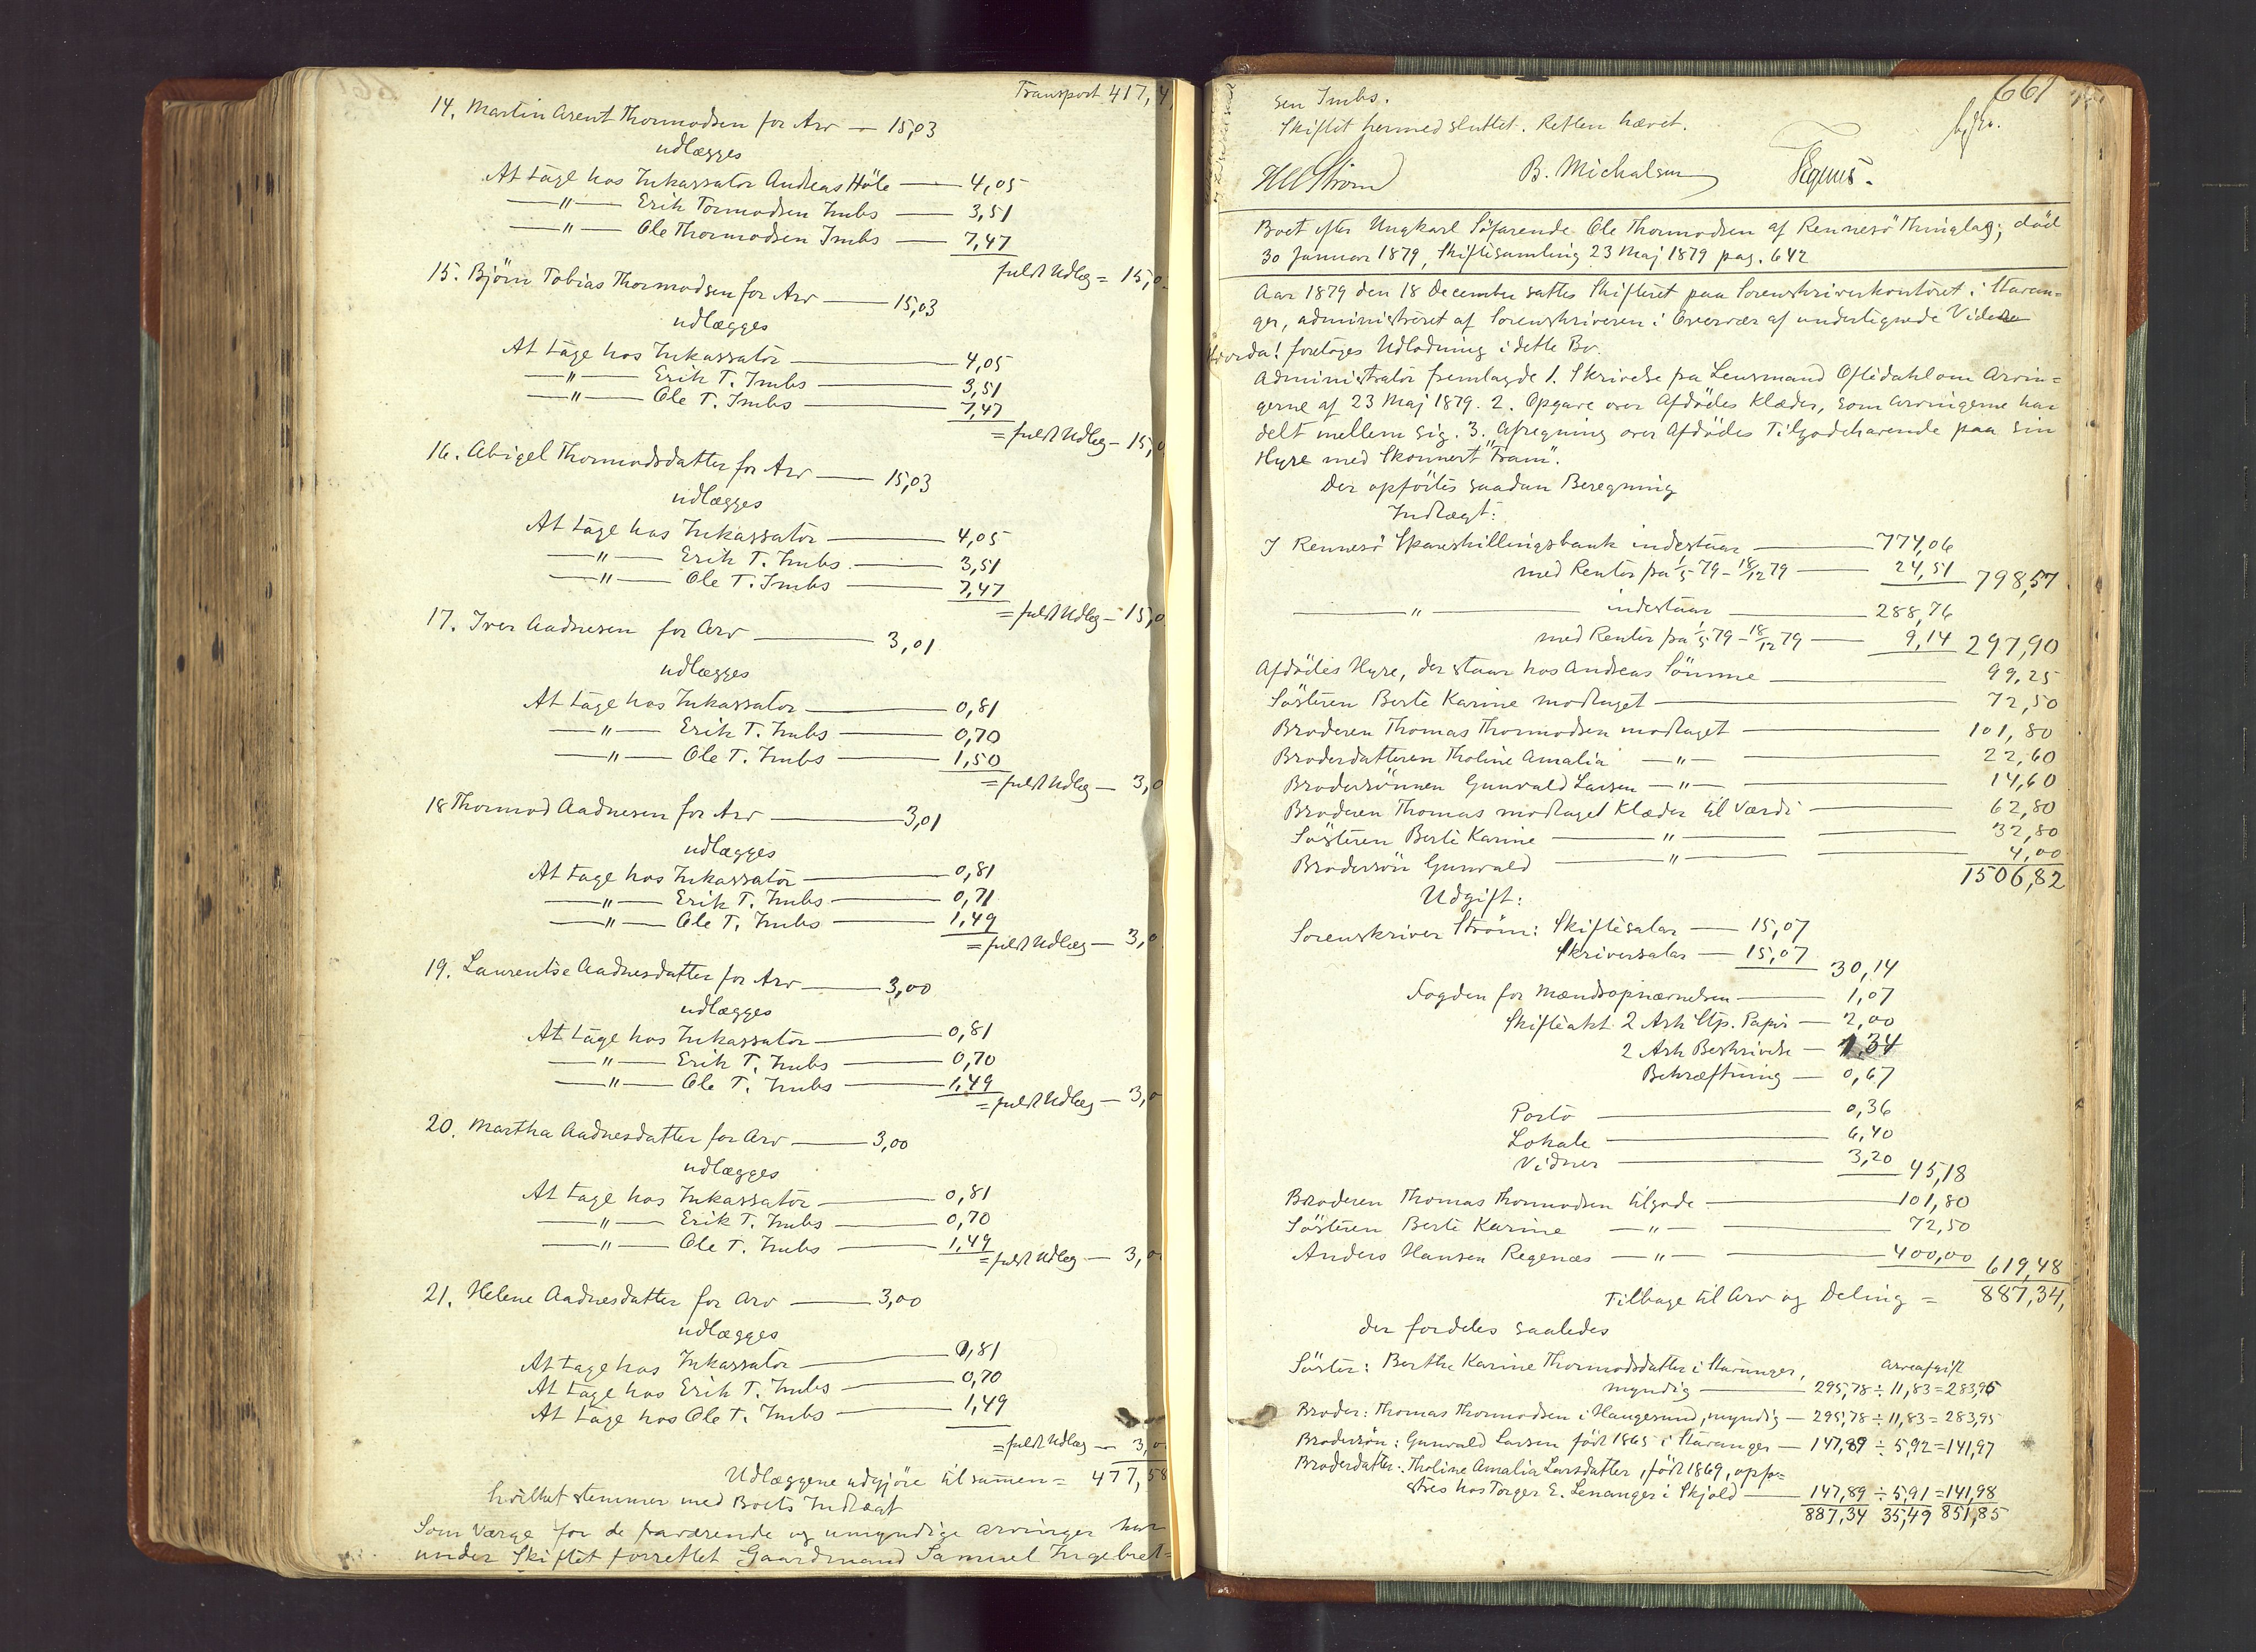 Transport 417,4
14. Martin Arent Thormodsen for Arv — 15,03
udlægges
At tage hos Inkassator Andreas Høle — 4,05
—"— Erik Tormodsen Imbs — 3,51
—"— Ole Thormodsen Imbs — 7,47
fuldt Udlæg = 15,0
15. Bjørn Tobias Thormodsen for Arv — 15,03
udlægges
At tage hos Inkassator — 4,05
—"— Erik T. Imbs — 3,51
—"— Ole T. Imbs — 7,47
= fuldt Udlæg — 15,0
16. Abigel Thormodsdatter for Arv — 15,03
udlægges
At tage hos Inkassator — 4,05
—"— Erik T. Imbs — 3,51
—"— Ole T. Imbs — 7,47
= fuldt Udlæg — 15,0
17. Iver Aadnesen for Arv — 3,01
udlægges
At tage hos Inkassator — 0,81
—"— Erik T. Imbs — 0,70
—"— Ole T. Imbs — 1,50
= fuldt Udlæg — 3,0
18 Thormod Aadnesen for Arv — 3,01
udlægges
At tage hos Inkassator — 0,81
—"— Erik T. Imbs — 0,71
—"— Ole T. Imbs — 1,49
= fuldt Udlæg — 3,0
19. Laurentse Aadnesdatter for Arv — 3,00
udlægges
At tage hos Inkassator — 0,81
—"— Erik T. Imbs — 0,70
—"— Ole T. Imbs — 1,49
= fuldt Udlæg — 3,0
20. Martha Aadnesdatter for Arv — 3,00
udlægges
At tage hos Inkassator — 0,81
—"— Erik T. Imbs — 0,70
—"— Ole T. Imbs — 1,49
= fuldt Udlæg — 3,0
21. Helene Aadnesdatter for Arv — 3,00
udlægges
At tage hos Inkassator — 0,81
At tage hos Erik T. Imbs — 0,70
At tage hos Ole T. Imbs — 1,49
= fuldt Udlæg — 3,0
Udlæggene udgjøre tilsamen = 477,58
hvilket stemmer med Boets Indtægt
Som Værge for de fraværende og umyndige Arvinger har
under Skiftet forrettet Gaardmand Samuel Ingebret=
661
sen Imbs.
Skiftet hermed sluttet. Retten hævet.
Strøm B. Michalsen
Boet efter Ungkarl Søfarende Ole Thormodsen af Rennesø Thinglag; død
30 Januar 1879, Skiftesamling 23 Maj 1879 pag. 642
Aar 1879 den 18 December sattes Skifteret paa Sorenskriverkontoret i Stavan=
ger, administreret af Sorenskriveren i Overvær af undertegnede Vidner
Hvorda! foretoges Udlodning i dette Bo.
Administrator fremlagde 1. Skrivelse fra Lensmand Oftedahl om Arvin=
gerne af 23 Maj 1879. 2. Opgave over Afdødes Klæder, som Arvingerne har
delt mellem sig. 3. Afregning over Afdødes Tilgodehavende paa sin
Hyre med Skonnert "Fram".
Der opførtes saadan Beregning
Indtægt:
I Rennesø Spareskillingsbank indestaar — 774,06
med Renter fra 1/5 79 – 18/12 79 — 24,51 798,57
—"— indestaar 288,76
med Renter fra 1/5 79 – 18/12 79 — 9,14 297,90
Afdødes Hyre, der staar hos Andreas Sømme — 99,25
Søsteren Berte Karine modtaget — 72,50
Broderen Thomas Thormodsen modtaget — 101,80
Broderdatteren Tholine Amalia —"— 22,60
Brodersønnen Gunvald Larsen —"— 14,60
Broderen Thomas modtaget Klæder til Værdi — 62,80
Søsteren Berte Karine —"— 32,80
Brodersøn Gunvald —"— 4,00
1506,82
Udgift:
Sorenskriver Strøm: Skiftesalar — 15,07
Skriversalar — 15,07 30,14
Fogden for Mændsopnævnelsen — 1,07
Skifteakt 2 Ark Stp. Papir — 2,00
2 Ark Beskrivelse — 1,34
Bekræftning — 0,67
Porto — 0,36
Lokale — 6,40
Vidner — 3,20 45,18
Broderen Thomas Thormodsen tilgode — 101,80
Søsteren Berte Karine —"— 72,50
Anders Hansen Regenæs —"— 400,00 619,48
Tilbage til Arv og Deling = 887,34,
der fordeles saaledes
Arveafgift
Søster: Berthe Karine Thormodsdatter i Stavanger,
myndig — 295,78 ÷ 11,83 = 283,95
Broder: Thomas Thormodsen i Haugesund, myndig — 295,78 ÷ 11,83 = 283,95
Brodersøn: Gunvald Larsen født 1865 i Stavanger — 147,89 ÷ 5,92 = 141,97
Broderdatter: Tholine Amalia Larsdatter, født 1869, opfo=
stres hos Torger E. Lenanger i Skjold — 147,89 ÷ 5,91 = 141,98
887,34 35,49 851,85